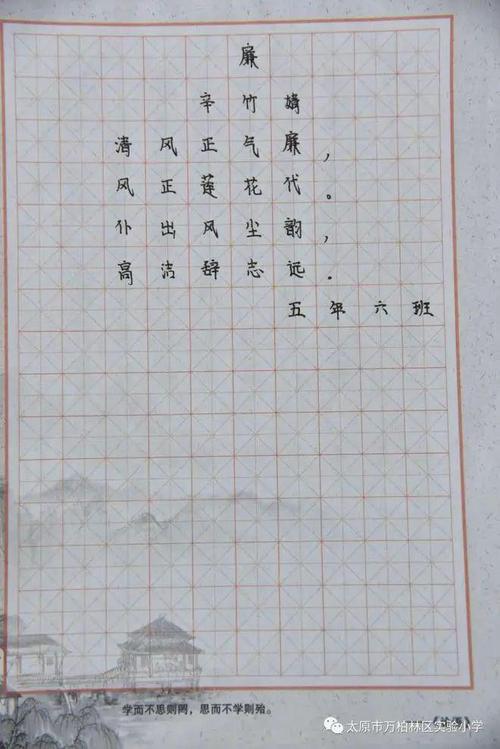 廉
辛竹婧
清风正气廉，
风正莲花代。
仆出风尘韵，
高洁辞志远.
五年六班
学而不思则罔，思而不学则殆。
太原市万柏林区实验小学